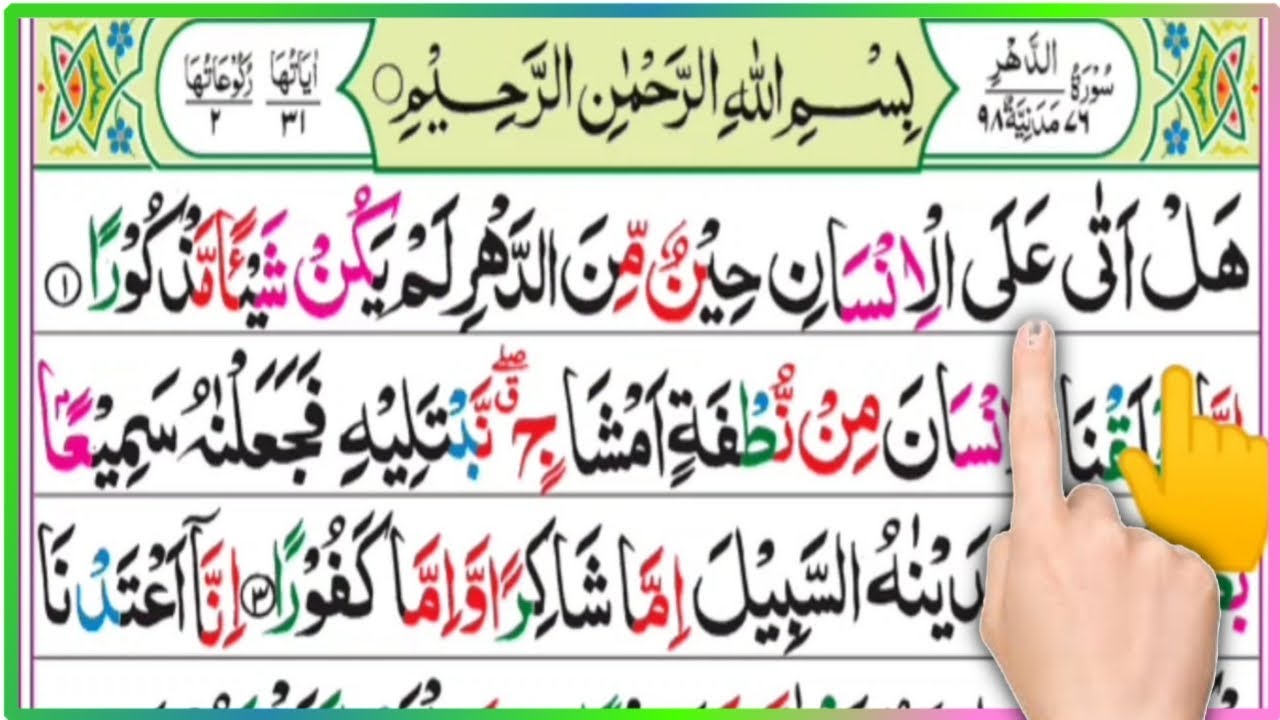 سُوْرَةُ الدَّهْرِ
٧٦ مَدَنِيَّةٌ ٩٨
بِسْمِ اللهِ الرَّحْمٰنِ الرَّحِيْمِ
اٰيَاتُهَا ٣١
رُكُوْعَاتُهَا ٢
هَلْ اَتٰى عَلَى الْاِنْسَانِ حِيْنٌ مِّنَ الدَّهْرِ لَمْ يَكُنْ شَيْـًٔا مَّذْكُوْرًا ١
مِنْ نُّطْفَةٍ اَمْشَاجٍ ۖق نَّبْتَلِيْهِ فَجَعَلْنٰهُ سَمِيْعًاۢ
السَّبِيْلَ اِمَّا شَاكِرًا وَّاِمَّا كَفُوْرًا ٣ اِنَّآ اَعْتَدْنَا